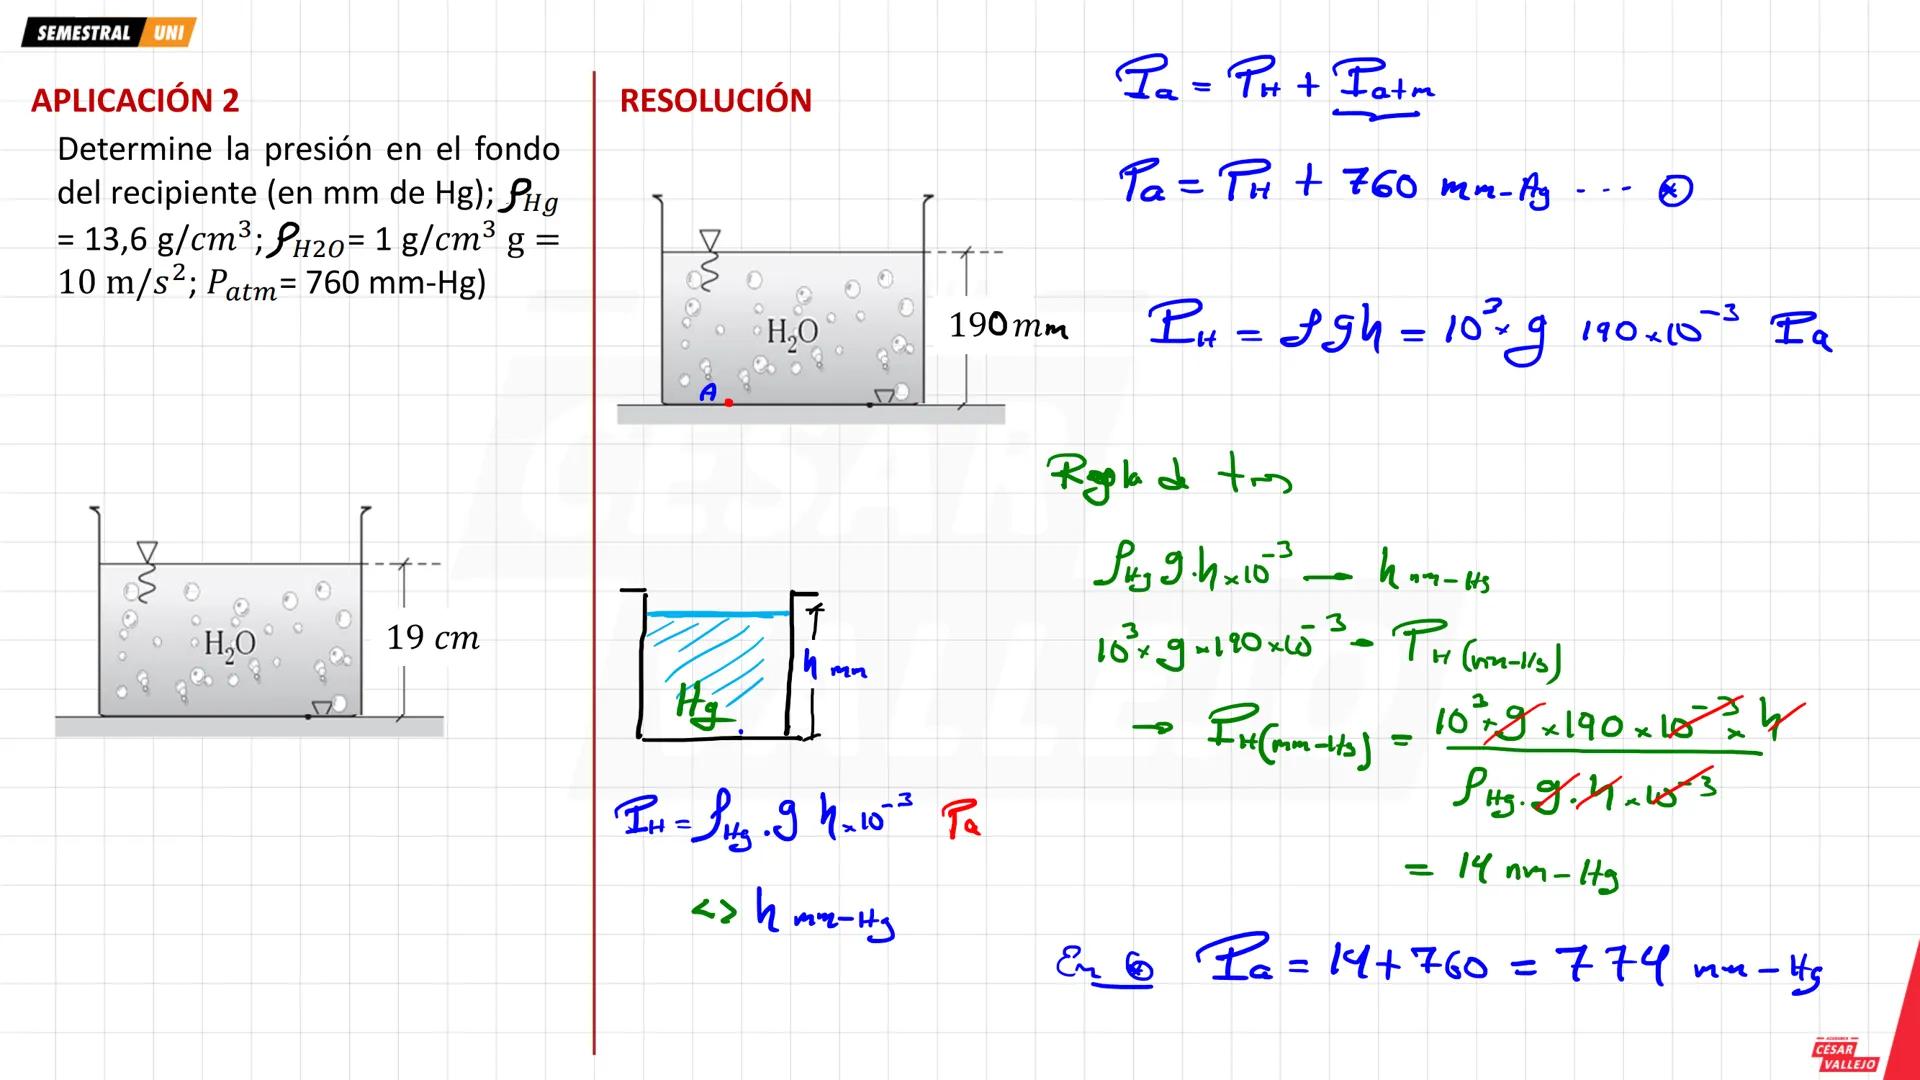 SEMESTRAL UNI
APLICACIÓN 2
Determine la presión en el fondo
del recipiente (en mm de Hg); ρ_Hg
= 13,6 g/cm³; ρ_H2O= 1 g/cm³ g =
10 m/s²; P_atm= 760 mm-Hg)
H₂O
19 cm
RESOLUCIÓN
H₂O
190 mm
A
Hg
h mm
P_H = ρ_Hg . g h × 10⁻³ Pa
<> h mm-Hg
P_a = P_H + P_atm
P_a = P_H + 760 mm-Hg ... ⊛
P_H = ρgh = 10³ × g 190 × 10⁻³ Pa
Regla de tres
ρ_Hg g.h × 10⁻³ — h mm-Hg
10³ × g × 190 × 10⁻³ - P_H (mm-Hg)
→ P_H(mm-Hg) = 10³ × g × 190 × 10⁻³ × h
ρ_Hg . g . h × 10⁻³
= 14 mm-Hg
En ⊛ P_a = 14 + 760 = 774 mm-Hg
ACADEMIA
CÉSAR
VALLEJO
CESAR
VALLEJO